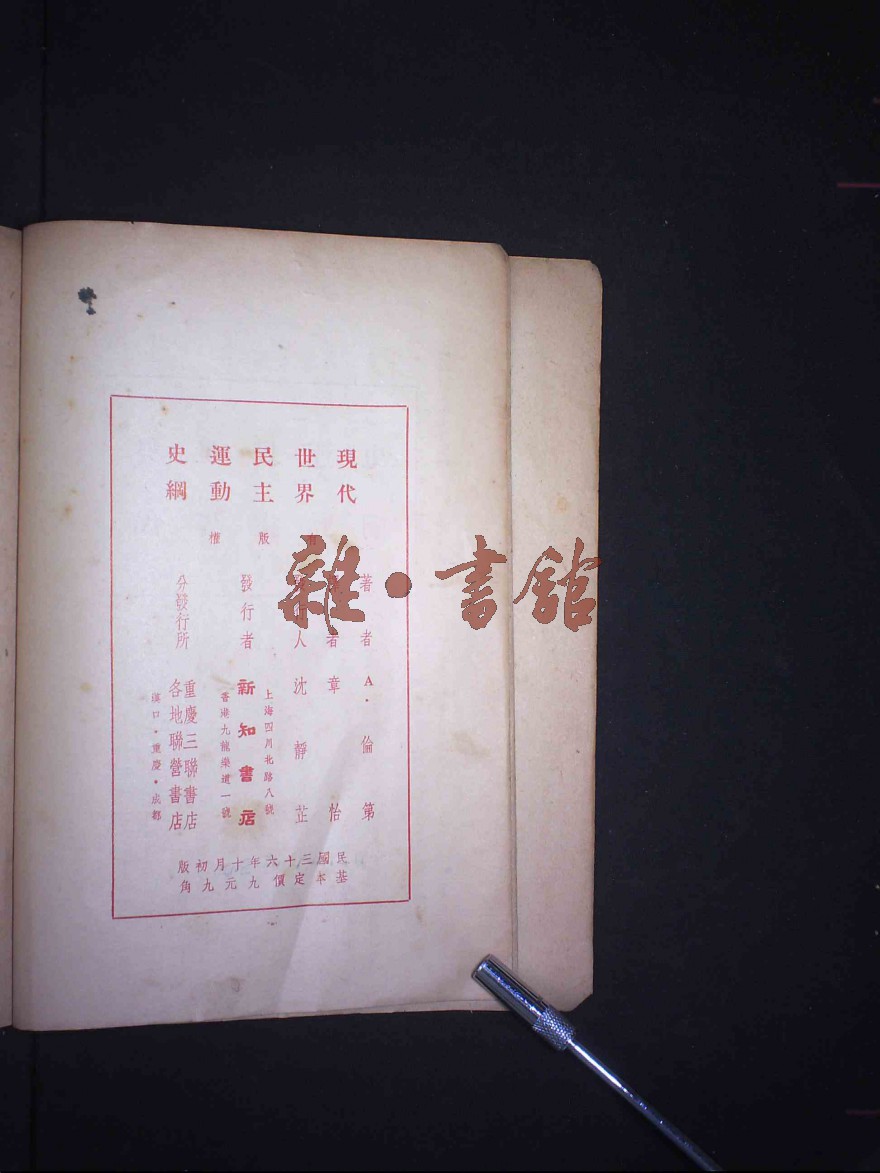 現代
世界
民主
運動
史綱
有版權
著者 A·倫第
者 章怡
人 沈靜芷
發行者 新知書店
上海四川北路八號
香港九龍樂道一號
分發行所 重慶三聯書店
各地聯營書店
漢口·重慶·成都
民國三十六年十月初版
基本定價九元九角
雜·書館